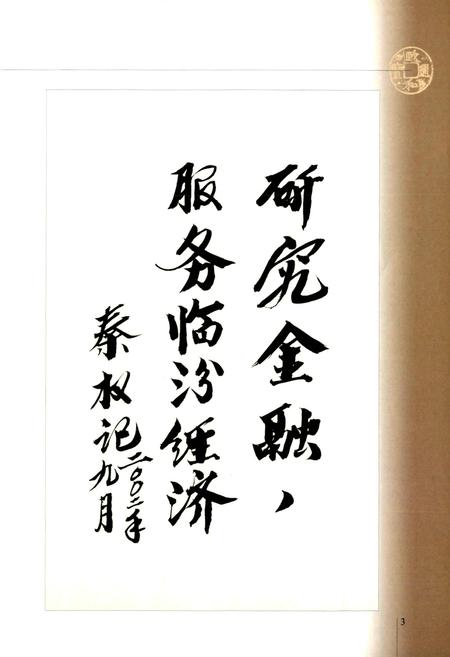 研究金融，
服务临汾經济
秦权记
二00二年
九月
3